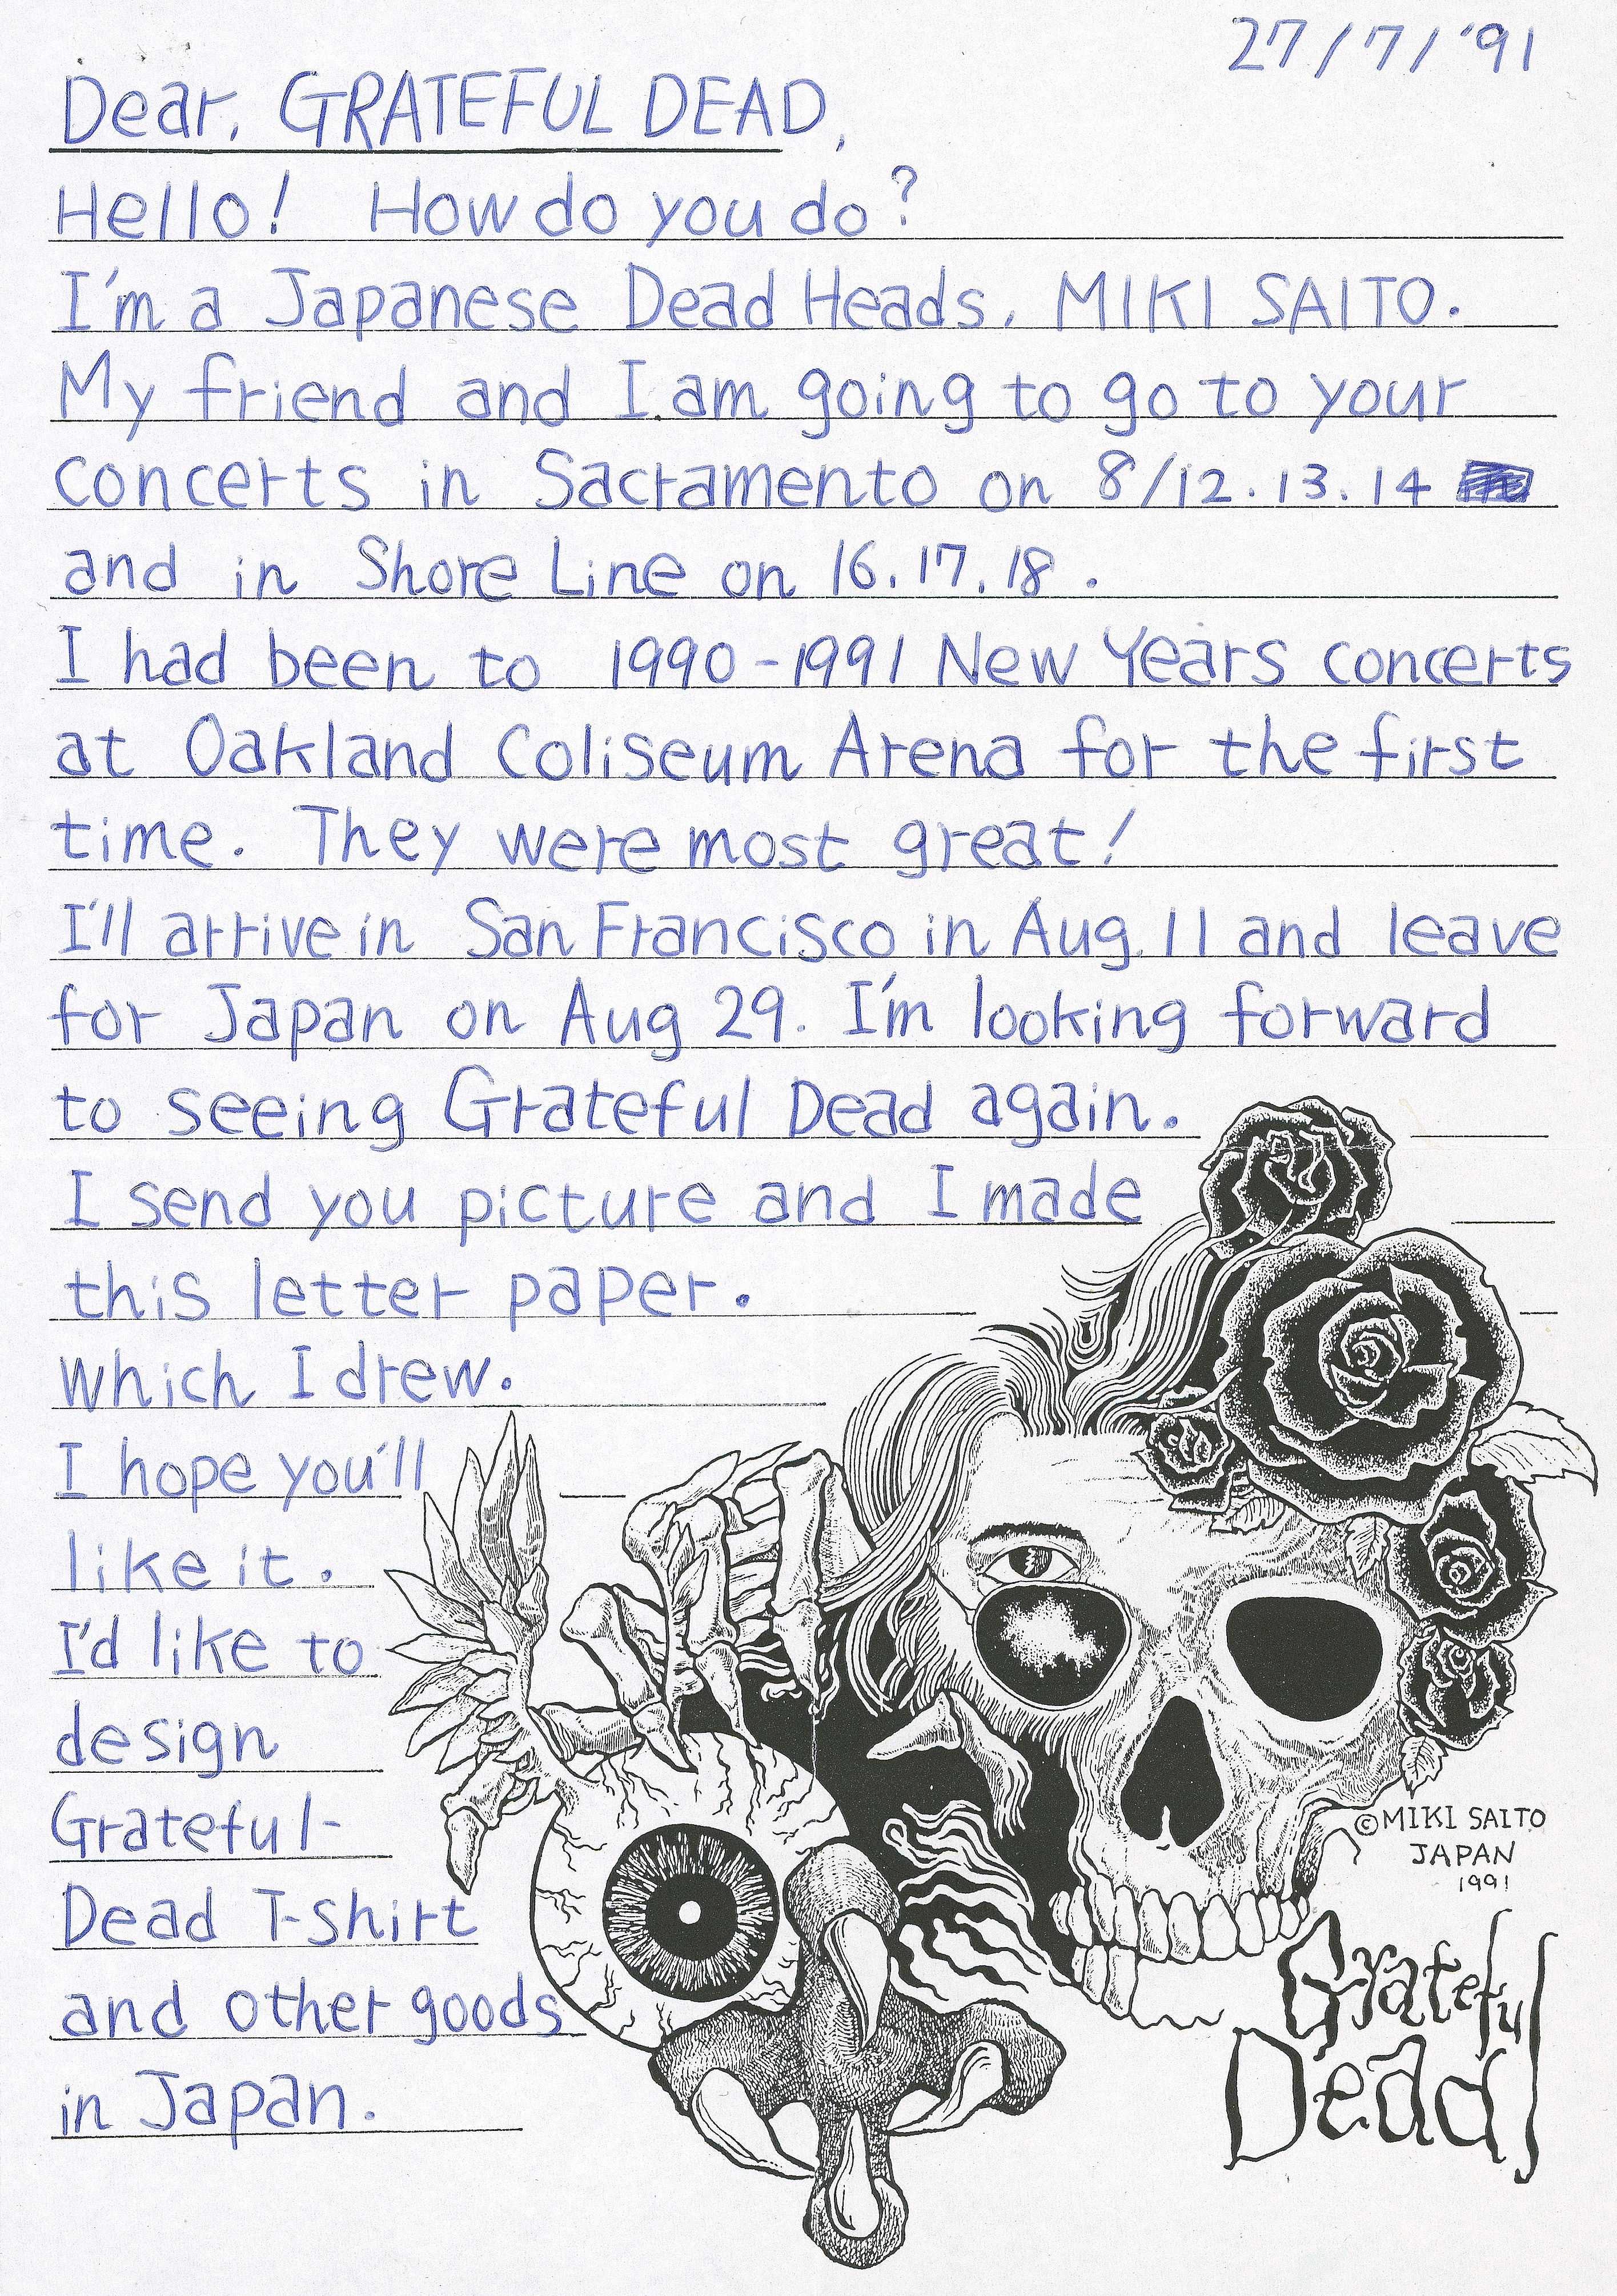 27/7/'91
Dear, GRATEFUL DEAD,
Hello! How do you do?
I'm a Japanese Dead Heads, MIKI SAITO.
My friend and I am going to go to your
concerts in Sacramento on 8/12.13.14
and in Shore Line on 16.17.18.
I had been to 1990-1991 New Years concerts
at Oakland Coliseum Arena for the first
time. They were most great!
I'll arrive in San Francisco in Aug. 11 and leave
for Japan on Aug 29. I'm looking forward
to seeing Grateful Dead again.
I send you picture and I made
this letter paper.
which I drew.
I hope you'll
like it.
I'd like to
design
Grateful-
Dead T-shirt
and other goods
in Japan.
©MIKI SAITO
JAPAN
1991
Grateful
Dead